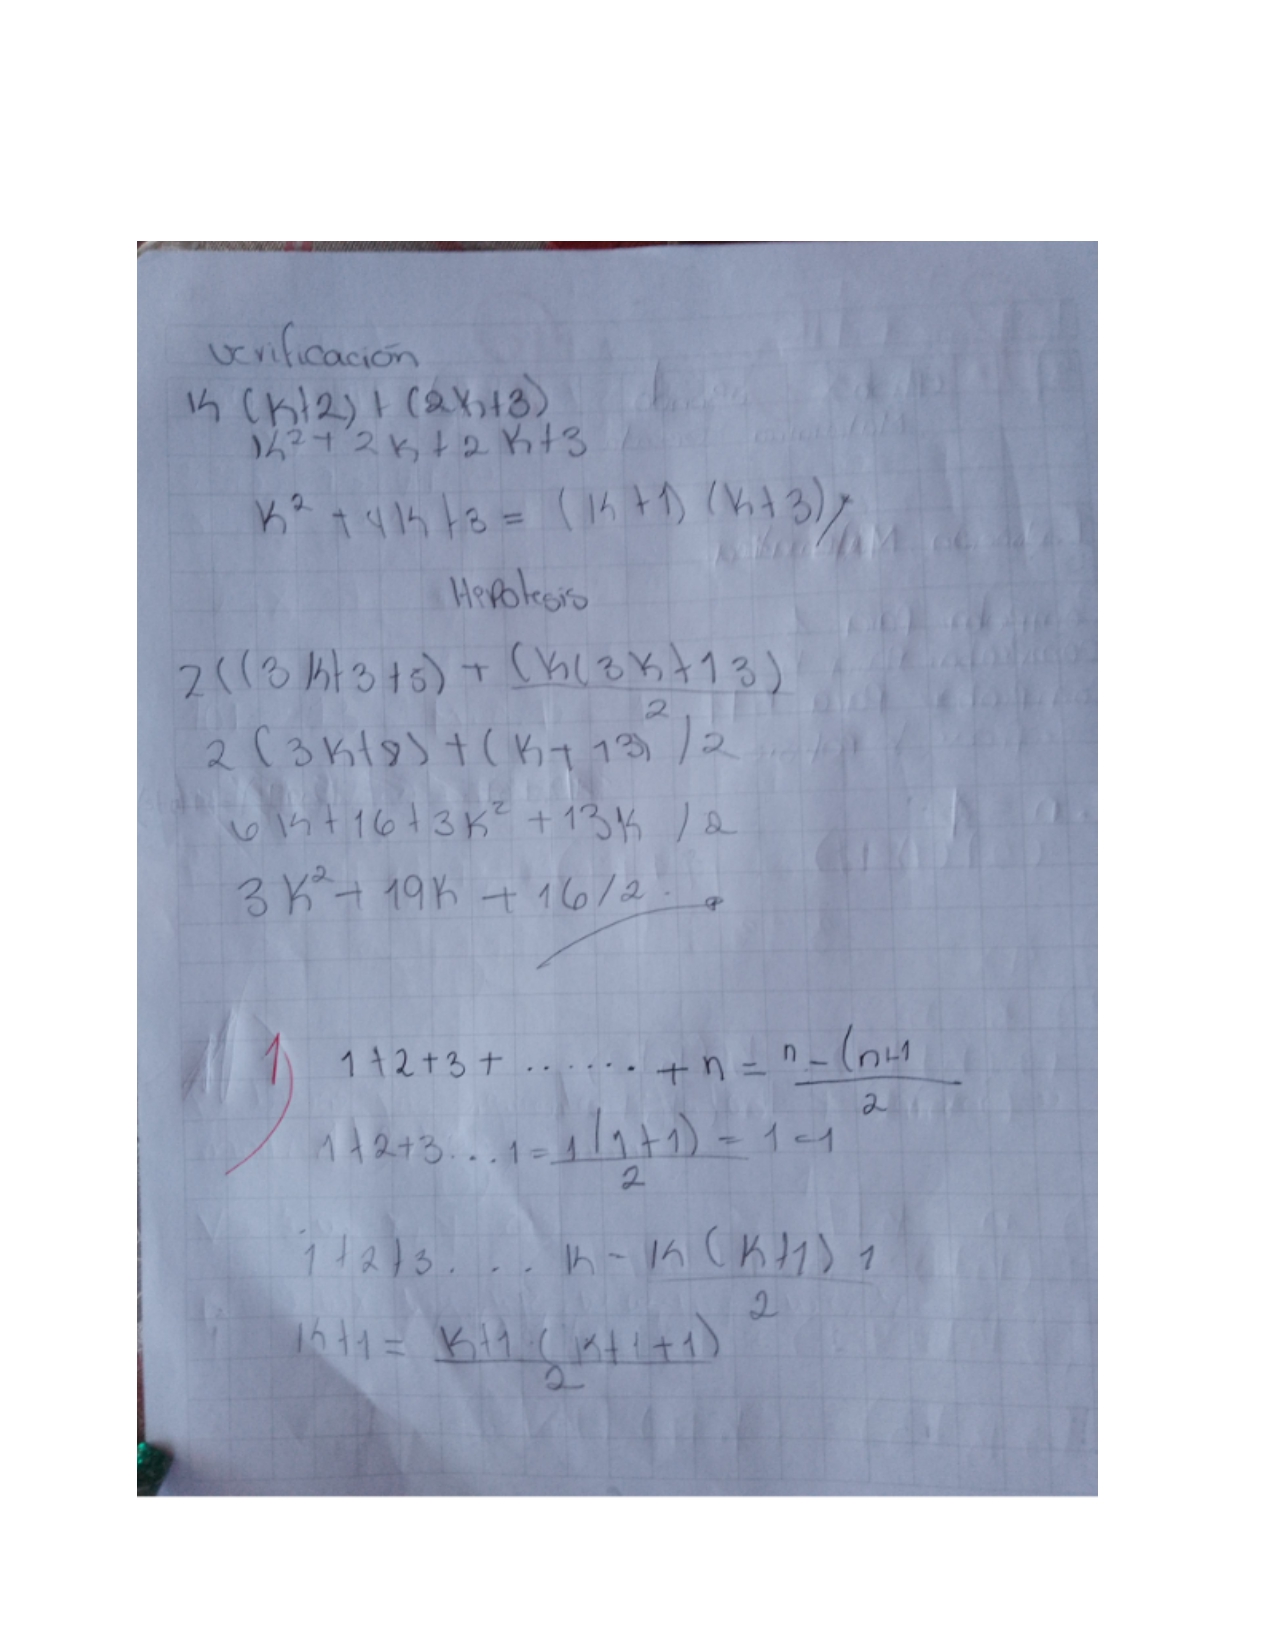 verificación
K (K+2) + (2K+3)
K² + 2K + 2K+3
K² + 4K+3 = (K+1) (K+3)
Hepotesis
2((3K+3+5) + (K(3K+13)
2
2 (3K+8) + (K+13)² / 2
6K+16+3K² + 13K / 2
3K² + 19K + 16/2.
1) 1+2+3+ ...... + n = n - (n+1
2
1+2+3...1 = 1(1+1) = 1=1
2
1+2+3. ... K - K (K+1) 1
2
K+1 = K+1 (K+1+1)
2